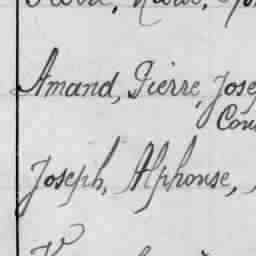 Amand, Pierre, Jose
Con
Joseph, Alphonse,